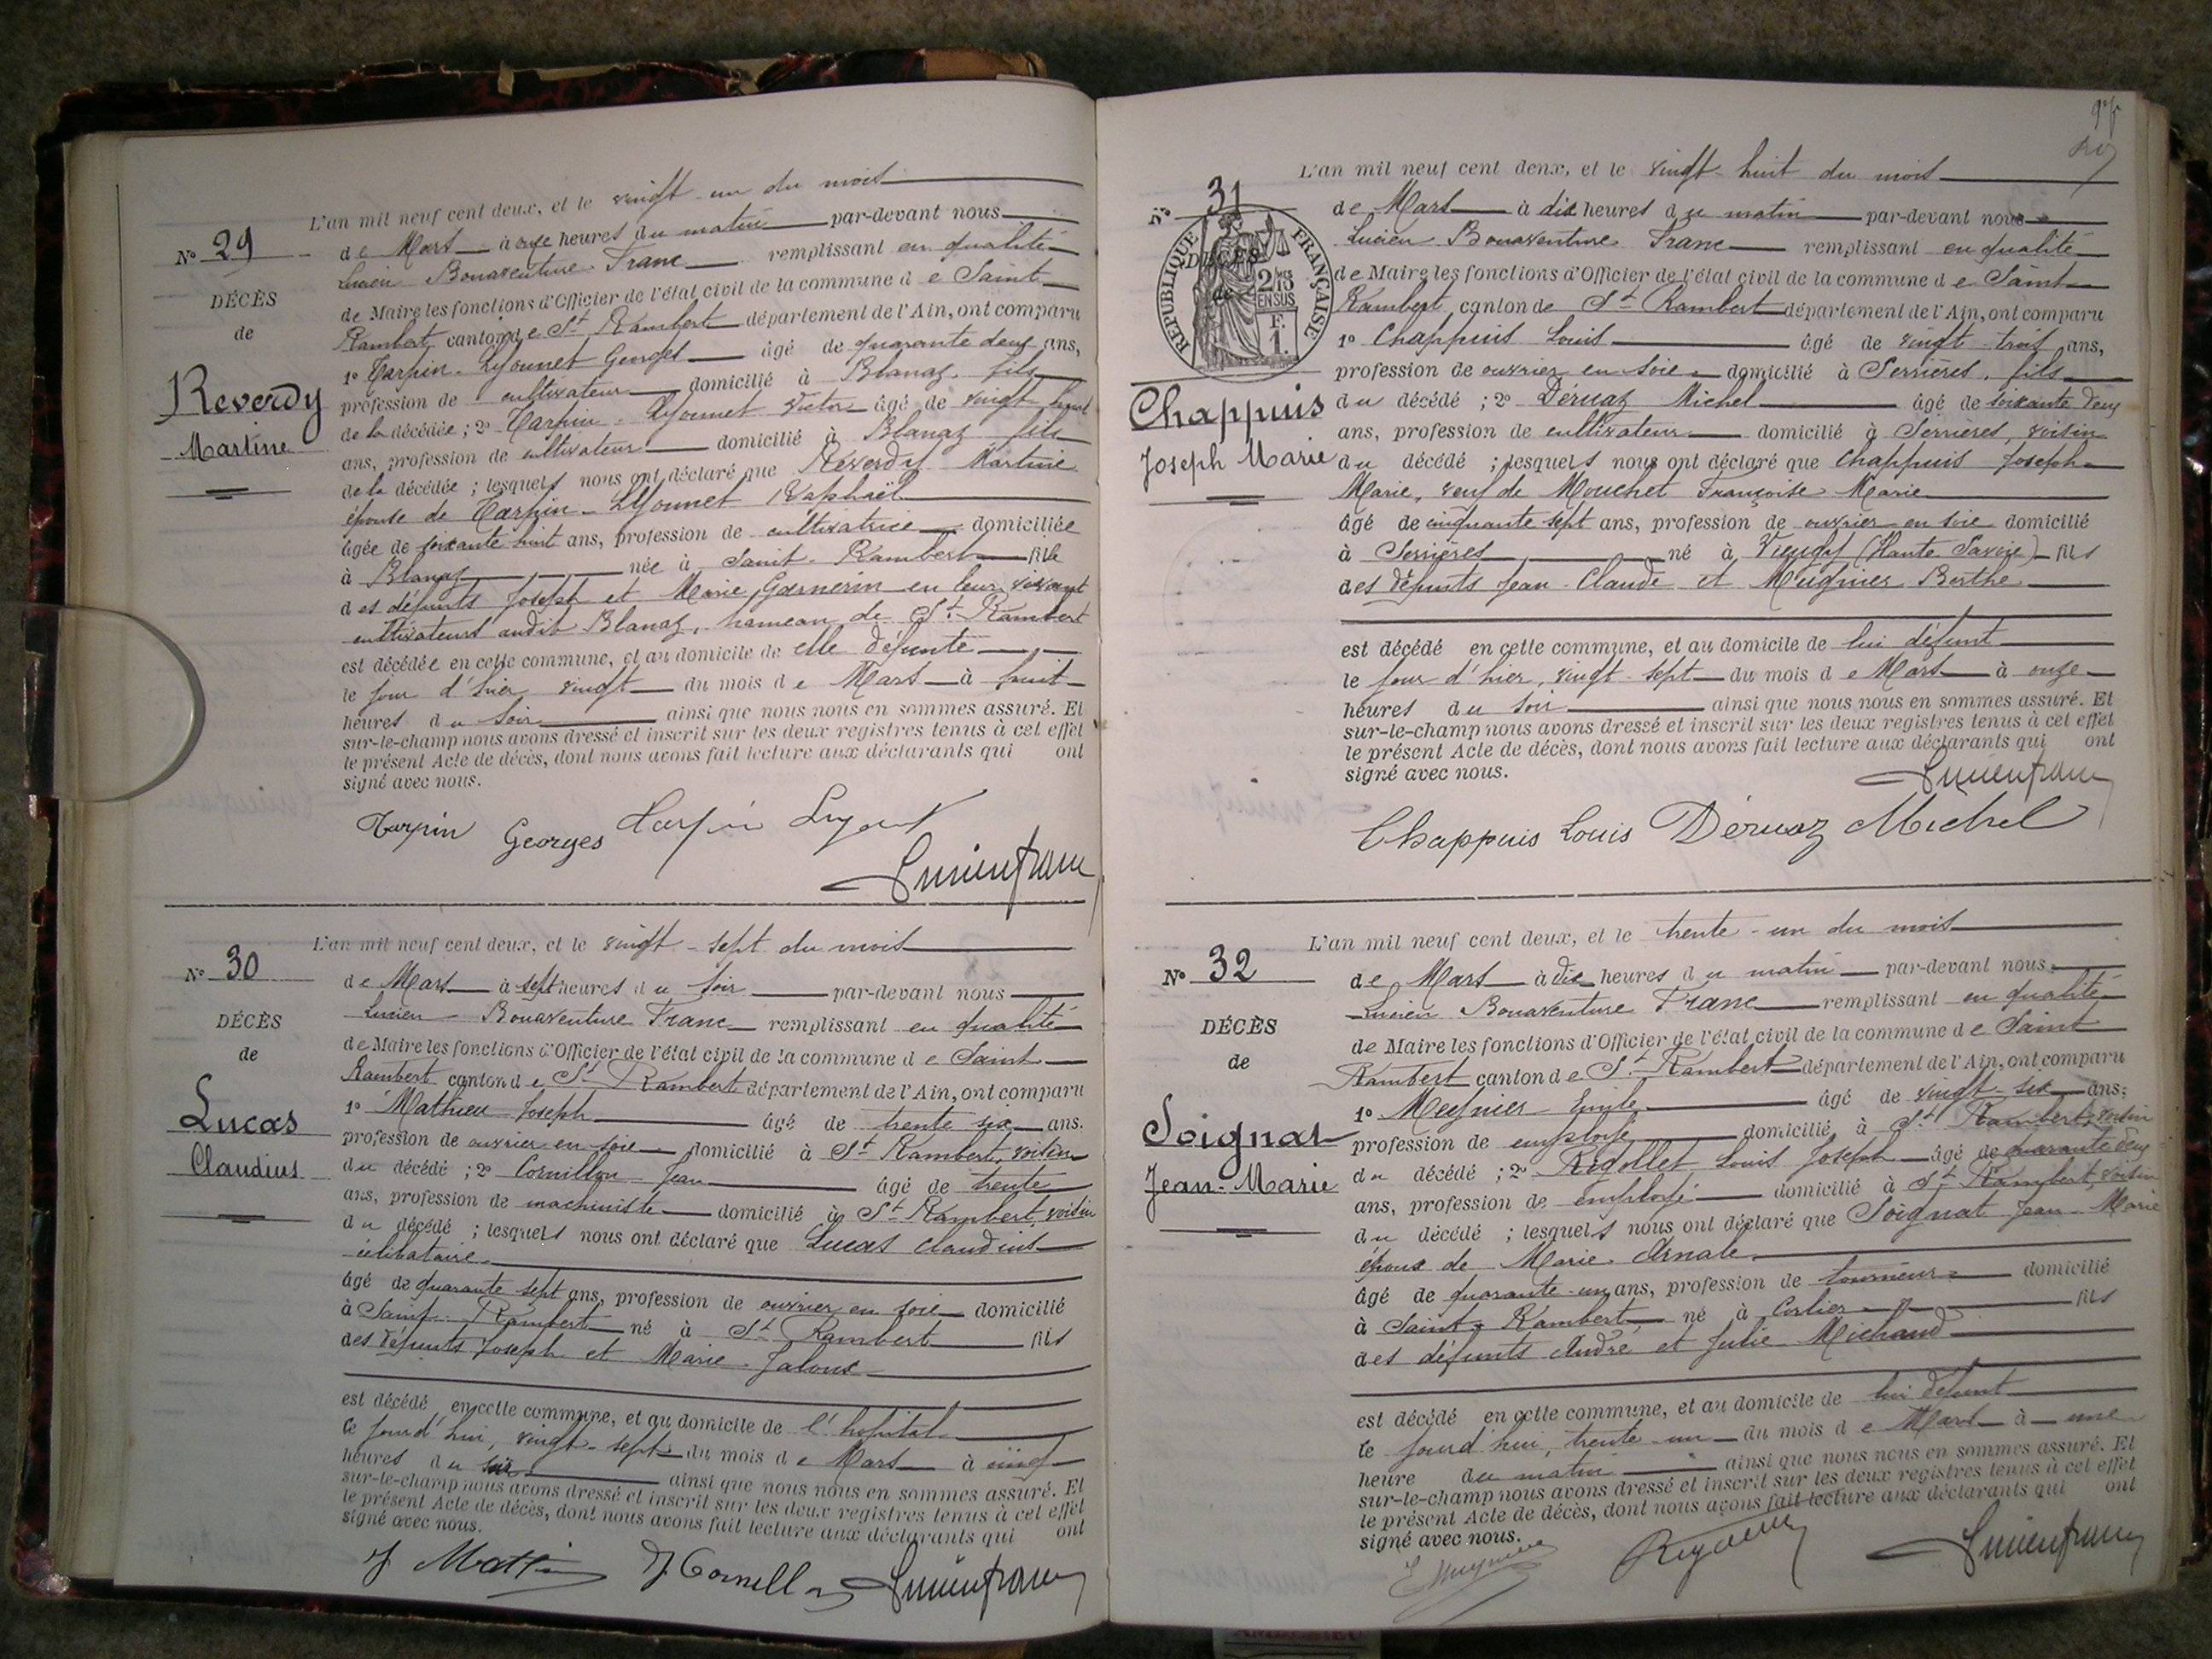 L'an mil neuf cent deux, et le vingt-un du mois
de Mars à onze heures du matin par-devant nous
Lucien Bonaventure Franc remplissant en qualité
de Maire les fonctions d'Officier de l'état civil de la commune de Saint
Rambert canton de St Rambert département de l'Ain, ont comparu
1º Tarpin-Lyonnet Georges âgé de quarante deux ans,
profession de cultivateur domicilié à Blanaz, fils
de la décédée ; 2º Tarpin-Lyonnet Victor âgé de vingt huit
ans, profession de cultivateur domicilié à Blanaz fils
de la décédée ; lesquels nous ont déclaré que Reverdy Martine
épouse de Tarpin-Lyonnet Raphaël
âgée de soixante huit ans, profession de cultivatrice domiciliée
à Blanaz née à Saint-Rambert fille
des défunts Joseph et Marie Garnerin en leur vivant
cultivateurs audit Blanaz, hameau de St Rambert
est décédée en cette commune, et au domicile de elle défunte
le jour d'hier vingt du mois de Mars à huit
heures du soir ainsi que nous nous en sommes assuré. Et
sur-le-champ nous avons dressé et inscrit sur les deux registres tenus à cet effet
le présent Acte de décès, dont nous avons fait lecture aux déclarants qui ont
signé avec nous.
Nº 29
DÉCÈS
de
Reverdy
Martine
Tarpin Georges Tarpin Lyonnet
Lucienfranc
L'an mil neuf cent deux, et le vingt-sept du mois
de Mars à sept heures du soir par-devant nous
Lucien Bonaventure Franc remplissant en qualité
de Maire les fonctions d'Officier de l'état civil de la commune de Saint
Rambert canton de St Rambert département de l'Ain, ont comparu
1º Mathieu Joseph âgé de trente six ans.
profession de ouvrier en soie domicilié à St Rambert, voisin
du décédé ; 2º Cornillon Jean âgé de trente
ans, profession de machiniste domicilié à St Rambert, voisin
du décédé ; lesquels nous ont déclaré que Lucas Claudius
célibataire
âgé de quarante sept ans, profession de ouvrier en soie domicilié
à Saint-Rambert né à St Rambert fils
des défunts Joseph et Marie Jaloux
est décédé en cette commune, et au domicile de l'hopital
le jourd'hui, vingt-sept du mois de Mars à cinq
heures du soir ainsi que nous nous en sommes assuré. Et
sur-le-champ nous avons dressé et inscrit sur les deux registres tenus à cet effet
le présent Acte de décès, dont nous avons fait lecture aux déclarants qui ont
signé avec nous.
Nº 30
DÉCÈS
de
Lucas
Claudius
J. Cornillon Lucienfranc
L'an mil neuf cent deux, et le vingt-huit du mois
de Mars à dix heures du matin par-devant nous
Lucien Bonaventure Franc remplissant en qualité
de Maire les fonctions d'Officier de l'état civil de la commune de Saint
Rambert canton de St Rambert département de l'Ain, ont comparu
1º Chappuis Louis âgé de vingt-trois ans,
profession de ouvrier en soie domicilié à Serrières, fils
du décédé ; 2º Déruaz Michel âgé de soixante deux
ans, profession de cultivateur domicilié à Serrières, voisin
du décédé ; lesquels nous ont déclaré que Chappuis Joseph
Marie, veuf de Mouchet Françoise Marie
âgé de cinquante sept ans, profession de ouvrier en soie domicilié
à Serrières né à Vieugy (Haute Savoie) fils
des défunts Jean-Claude et Meugnier Berthe
est décédé en cette commune, et au domicile de lui défunt
le jour d'hier, vingt-sept du mois de Mars à onze
heures du soir ainsi que nous nous en sommes assuré. Et
sur-le-champ nous avons dressé et inscrit sur les deux registres tenus à cet effet
le présent Acte de décès, dont nous avons fait lecture aux déclarants qui ont
signé avec nous.
Nº 31
DÉCÈS
de
RÉPUBLIQUE FRANÇAISE
2/10es
EN SUS
F.
1.
Chappuis
Joseph Marie
Lucienfranc
Chappuis Louis Déruaz Michel
L'an mil neuf cent deux, et le trente-un du mois
de Mars à dix heures du matin par-devant nous
Lucien Bonaventure Franc remplissant en qualité
de Maire les fonctions d'Officier de l'état civil de la commune de Saint
Rambert canton de St Rambert département de l'Ain, ont comparu
1º Meynier Emile âgé de vingt six ans,
profession de employé domicilié à St Rambert, voisin
du décédé ; 2º Rigollet Louis Joseph âgé de quarante deux
ans, profession de employé domicilié à St Rambert, voisin
du décédé ; lesquels nous ont déclaré que Soignat Jean-Marie
époux de Marie Arnale
âgé de quarante-un ans, profession de tourneur domicilié
à Saint-Rambert né à Corlier fils
des défunts André et Julie Michaud
est décédé en cette commune, et au domicile de lui défunt
le jourd'hui, trente-un du mois de Mars à une
heure du matin ainsi que nous nous en sommes assuré. Et
sur-le-champ nous avons dressé et inscrit sur les deux registres tenus à cet effet
le présent Acte de décès, dont nous avons fait lecture aux déclarants qui ont
signé avec nous.
Nº 32
DÉCÈS
de
Soignat
Jean-Marie
Lucienfranc